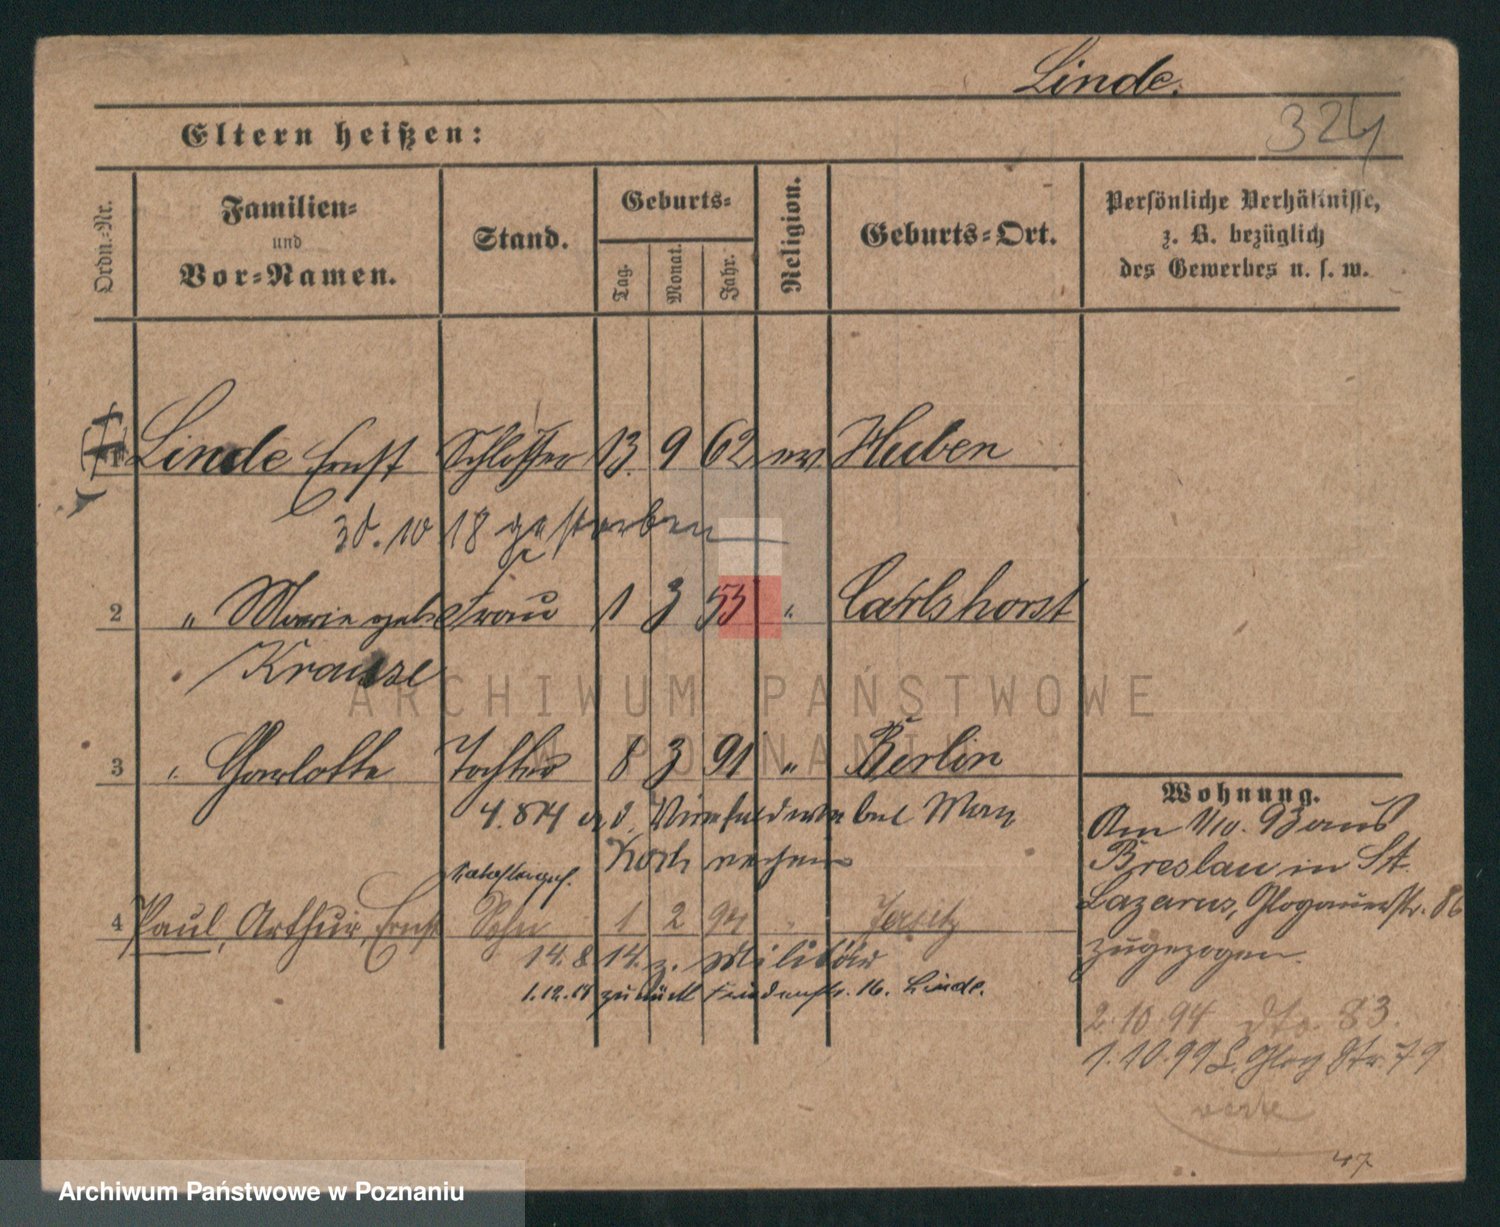 Linde.
324
Eltern heißen:
Ordn.-Nr.
Familien-
und
Vor-Namen.
Stand.
Geburts-
Tag.
Monat.
Jahr.
Religion.
Geburts-Ort.
Persönliche Verhältnisse,
z. B. bezüglich
des Gewerbes u. s. w.
1 Linde Ernst Schlosser 13. 9 62 ev. Huben
30. 10 18 gestorben
2 " Marie geb. Frau 1 3 53 " Carlshorst
Krause
3 " Charlotte Tochter 8 3 91 " Berlin
4 Paul, Arthur, Ernst Sohn 1 2 94 " Jersitz
14. 8 14. z. Militär
1.12.18 zurück 16. Linde.
Wohnung.
Am 1/10. 93 aus
Breslau in St.
Lazarus, Glogauerstr. 86
zugezogen.
2.10.94 dto 83.
1.10.99 L. Glog Str. 79
47
ARCHIWUM PAŃSTWOWE
W POZNANIU
Archiwum Państwowe w Poznaniu